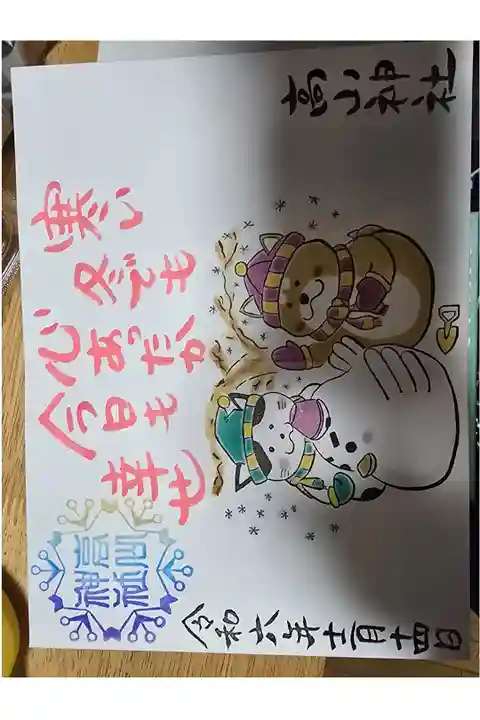 高山神社
寒い
冬でも
心あったか
今日も
幸せ
高山
神社
令和六年十二月十四日